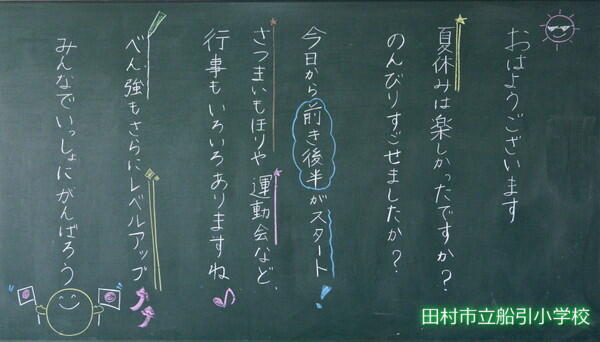 おはようございます
夏休みは楽しかったですか？
のんびりすごせましたか？
今日から前き後半がスタート！
さつまいもほりや運動会など、
行事もいろいろありますね♪
べん強もさらにレベルアップ
みんなでいっしょにがんばろう
田村市立船引小学校